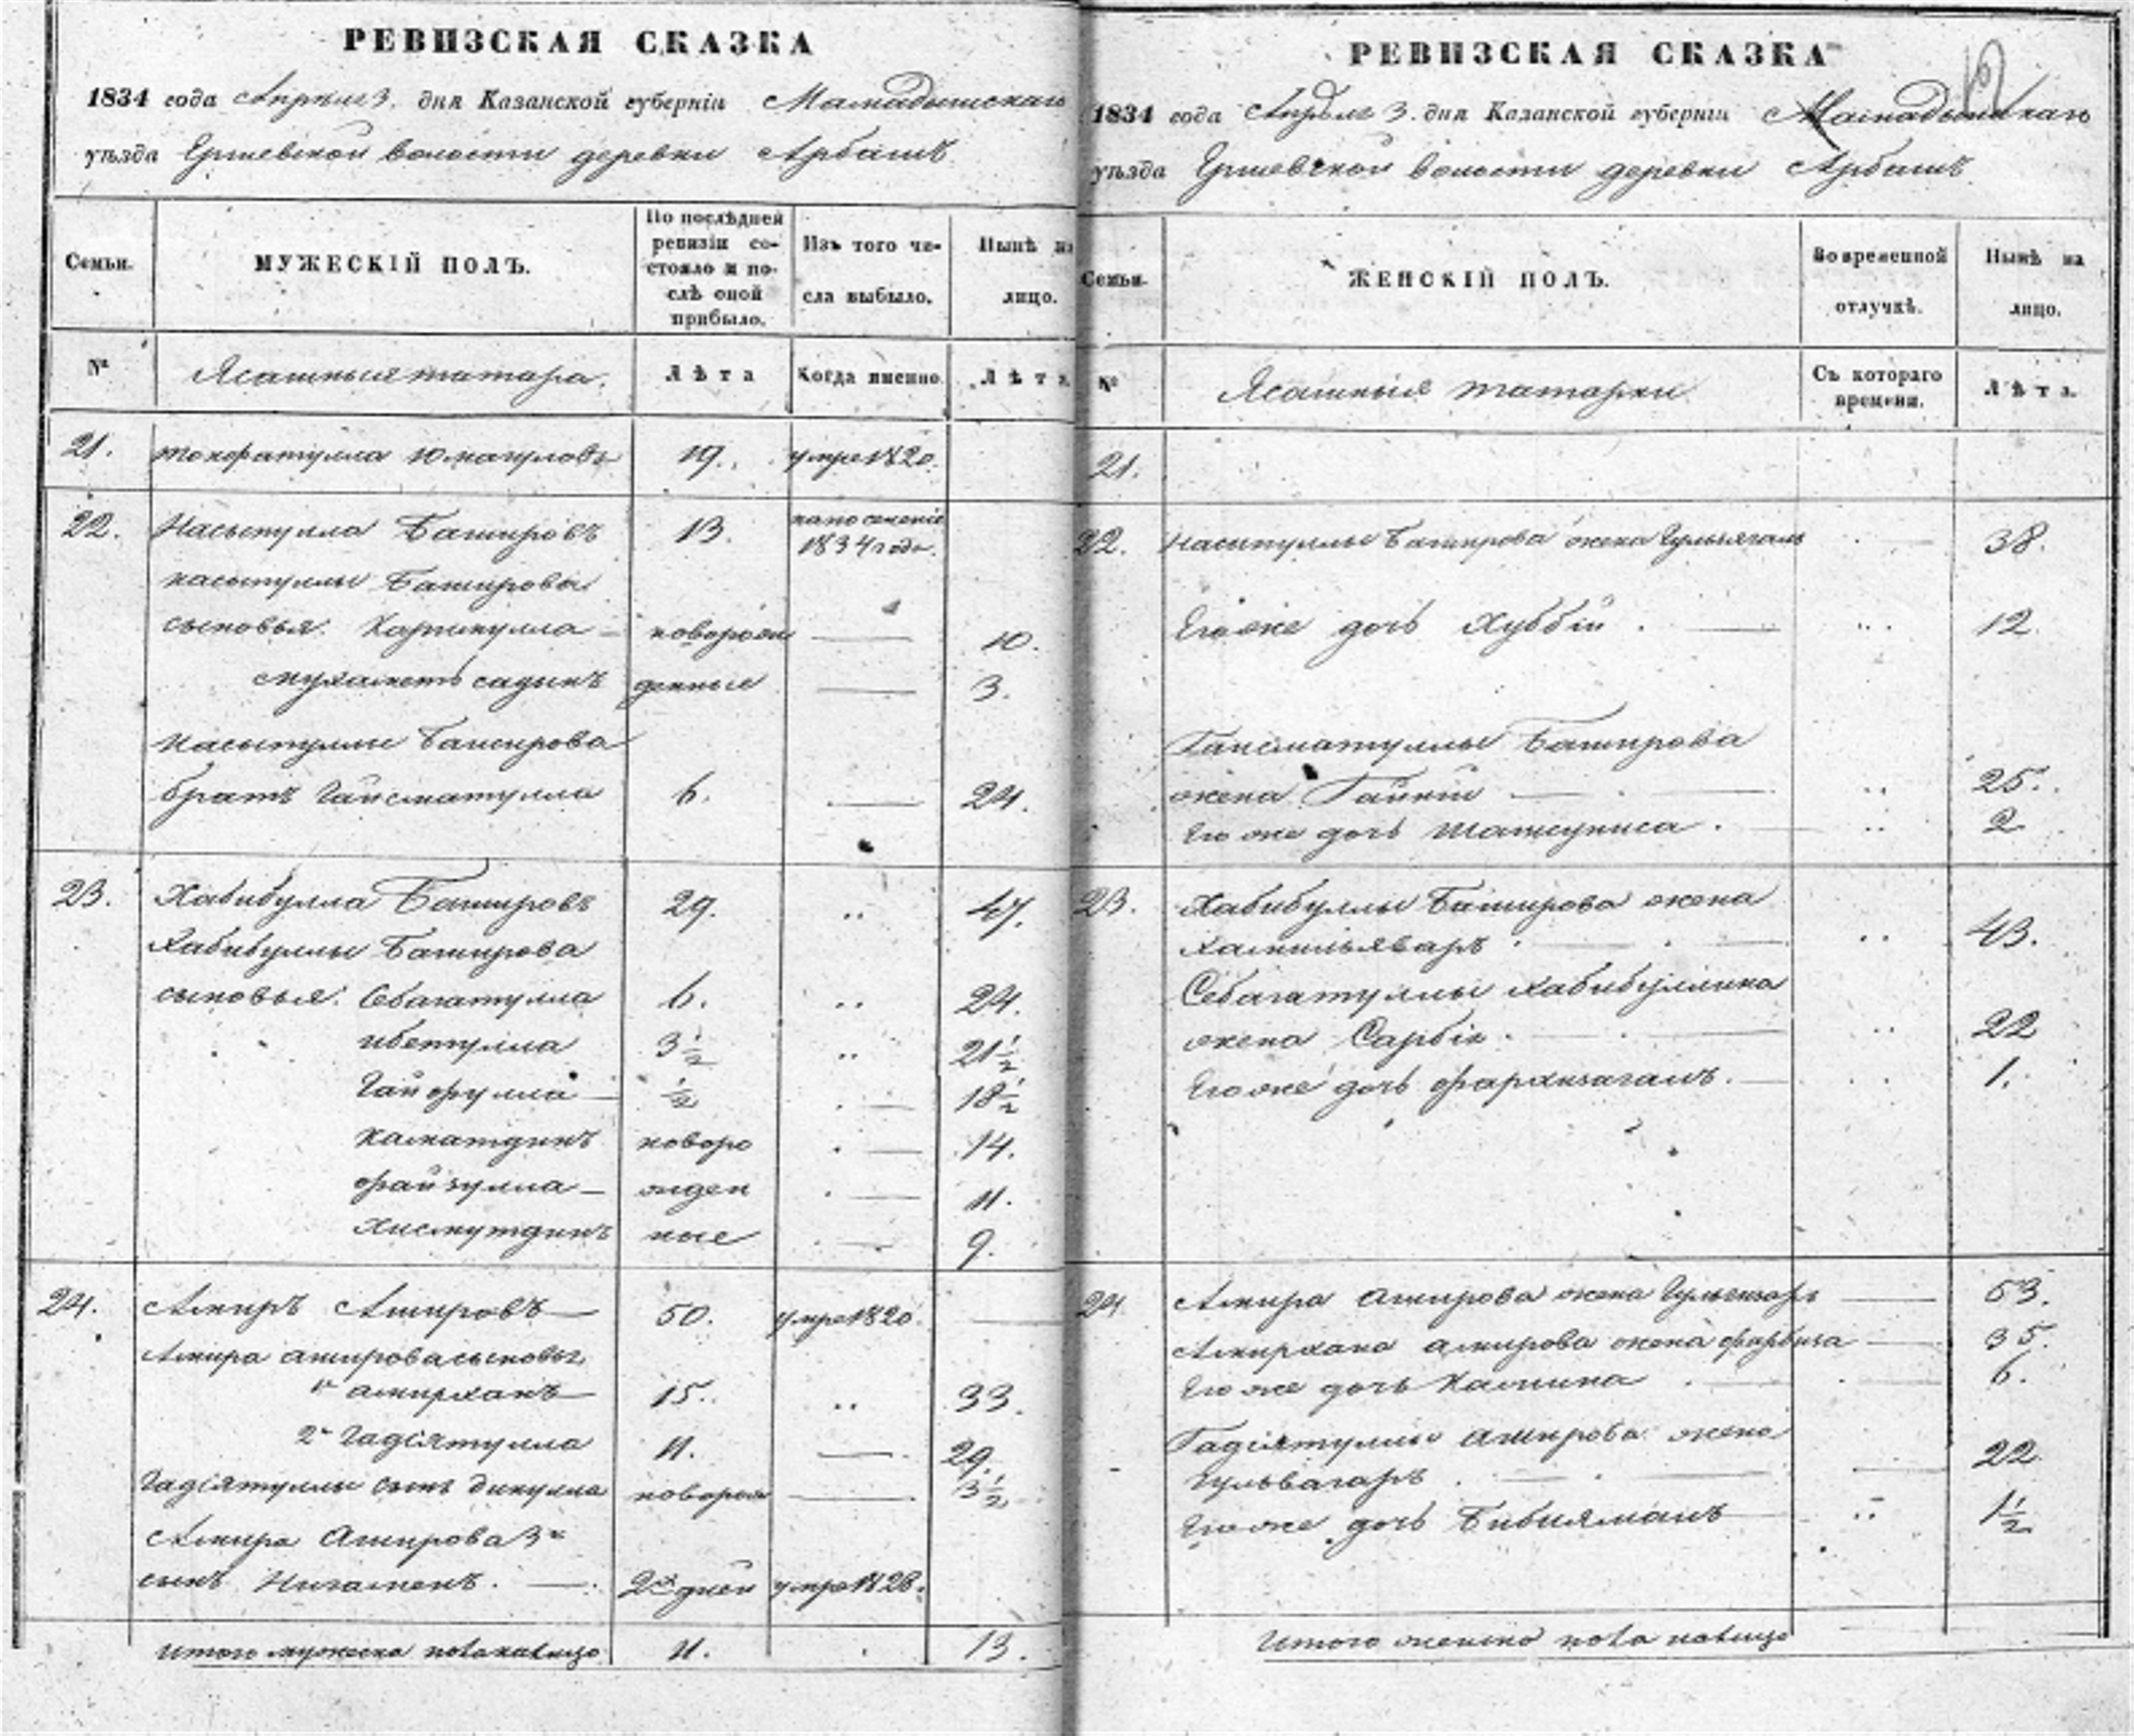 РЕВИЗСКАЯ СКАЗКА
1834 года Апреля 3. дня Казанской губерніи Мамадышскаго
уѣзда волости деревни Арбашъ
Семьи.
МУЖЕСКІЙ ПОЛЪ.
По послѣдней
ревизіи со-
стояло и по-
слѣ оной
прибыло.
Изъ того чи-
сла выбыло.
Нынѣ на
лицо.
№
Ясашныя татара.
Лѣта
Когда именно.
Лѣта.
21. Юмагуловъ 19. умре 1820.
22. Насыпулла Башировъ 13. 1834 года.
насыпуллы Баширова
сыновья. Каримулла новорож 10.
мухаметъ садыкъ денные 3.
Насыпуллы Баширова
братъ Гайсматулла 6. 24.
23. Хабибулла Башировъ 29. 47.
Хабибуллы Баширова
сыновья. Себагатулла 6. 24.
ибетулла 3½ 21½
Гайфулла ½ 18½
Каматдинъ новоро 14.
файзулла жден 11.
Хисмутдинъ ные 9.
24. Амиръ Ашировъ 50. умре 1820.
Амира аширова сыновья
1й амирханъ 15. 33.
2й Гадіятулла 11. 29.
Гадіятуллы сынъ динулла новорож 3½
Амира Аширова 3й
сынъ Нигаменъ. 2х дней умре 1828.
Итого мужеска пола налицо 11. 13.
РЕВИЗСКАЯ СКАЗКА
1834 года Апрѣля 3. дня Казанской губерніи Мамадышскаго
уѣзда волости деревни Арбашъ
Семьи.
ЖЕНСКІЙ ПОЛЪ.
Во временной
отлучкѣ.
Нынѣ на
лицо.
№
Ясашныя татарки
Съ котораго
времени.
Лѣта.
21.
22. Насыпуллы Баширова жена 38.
Его же дочь Хуббій. 12.
Гайсматуллы Баширова
жена 25.
Его же дочь Шамсуниса. 2
23. Хабибуллы Баширова жена
43.
Себагатуллы Хабибуллина
жена Сарбія. 22
Его же дочь 1.
24 Амира аширова жена 53.
Амирхана амирова жена 35.
Его же дочь Камина 6.
Гадіятуллы амирова жена
Гульвагаръ 22
Его же дочь Бибиямалъ 1½
Итого женска пола налицо